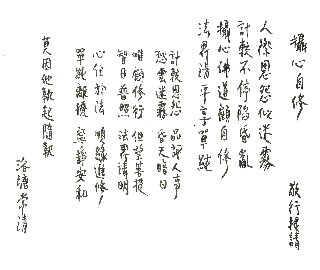 攝心自修
敬行提請
人際恩怨似迷霧
計較不停陷昏亂
攝心佛道顧自修
法界清平享單純
計較恩怨 品評人事
怨雲迷霧 昏天暗日
唯顧修行 但望菩提
智日普照 法界清明
心住於法 順緣進修
單純離擾 寂靜安和
莫因他執起隨執
洛塘常清